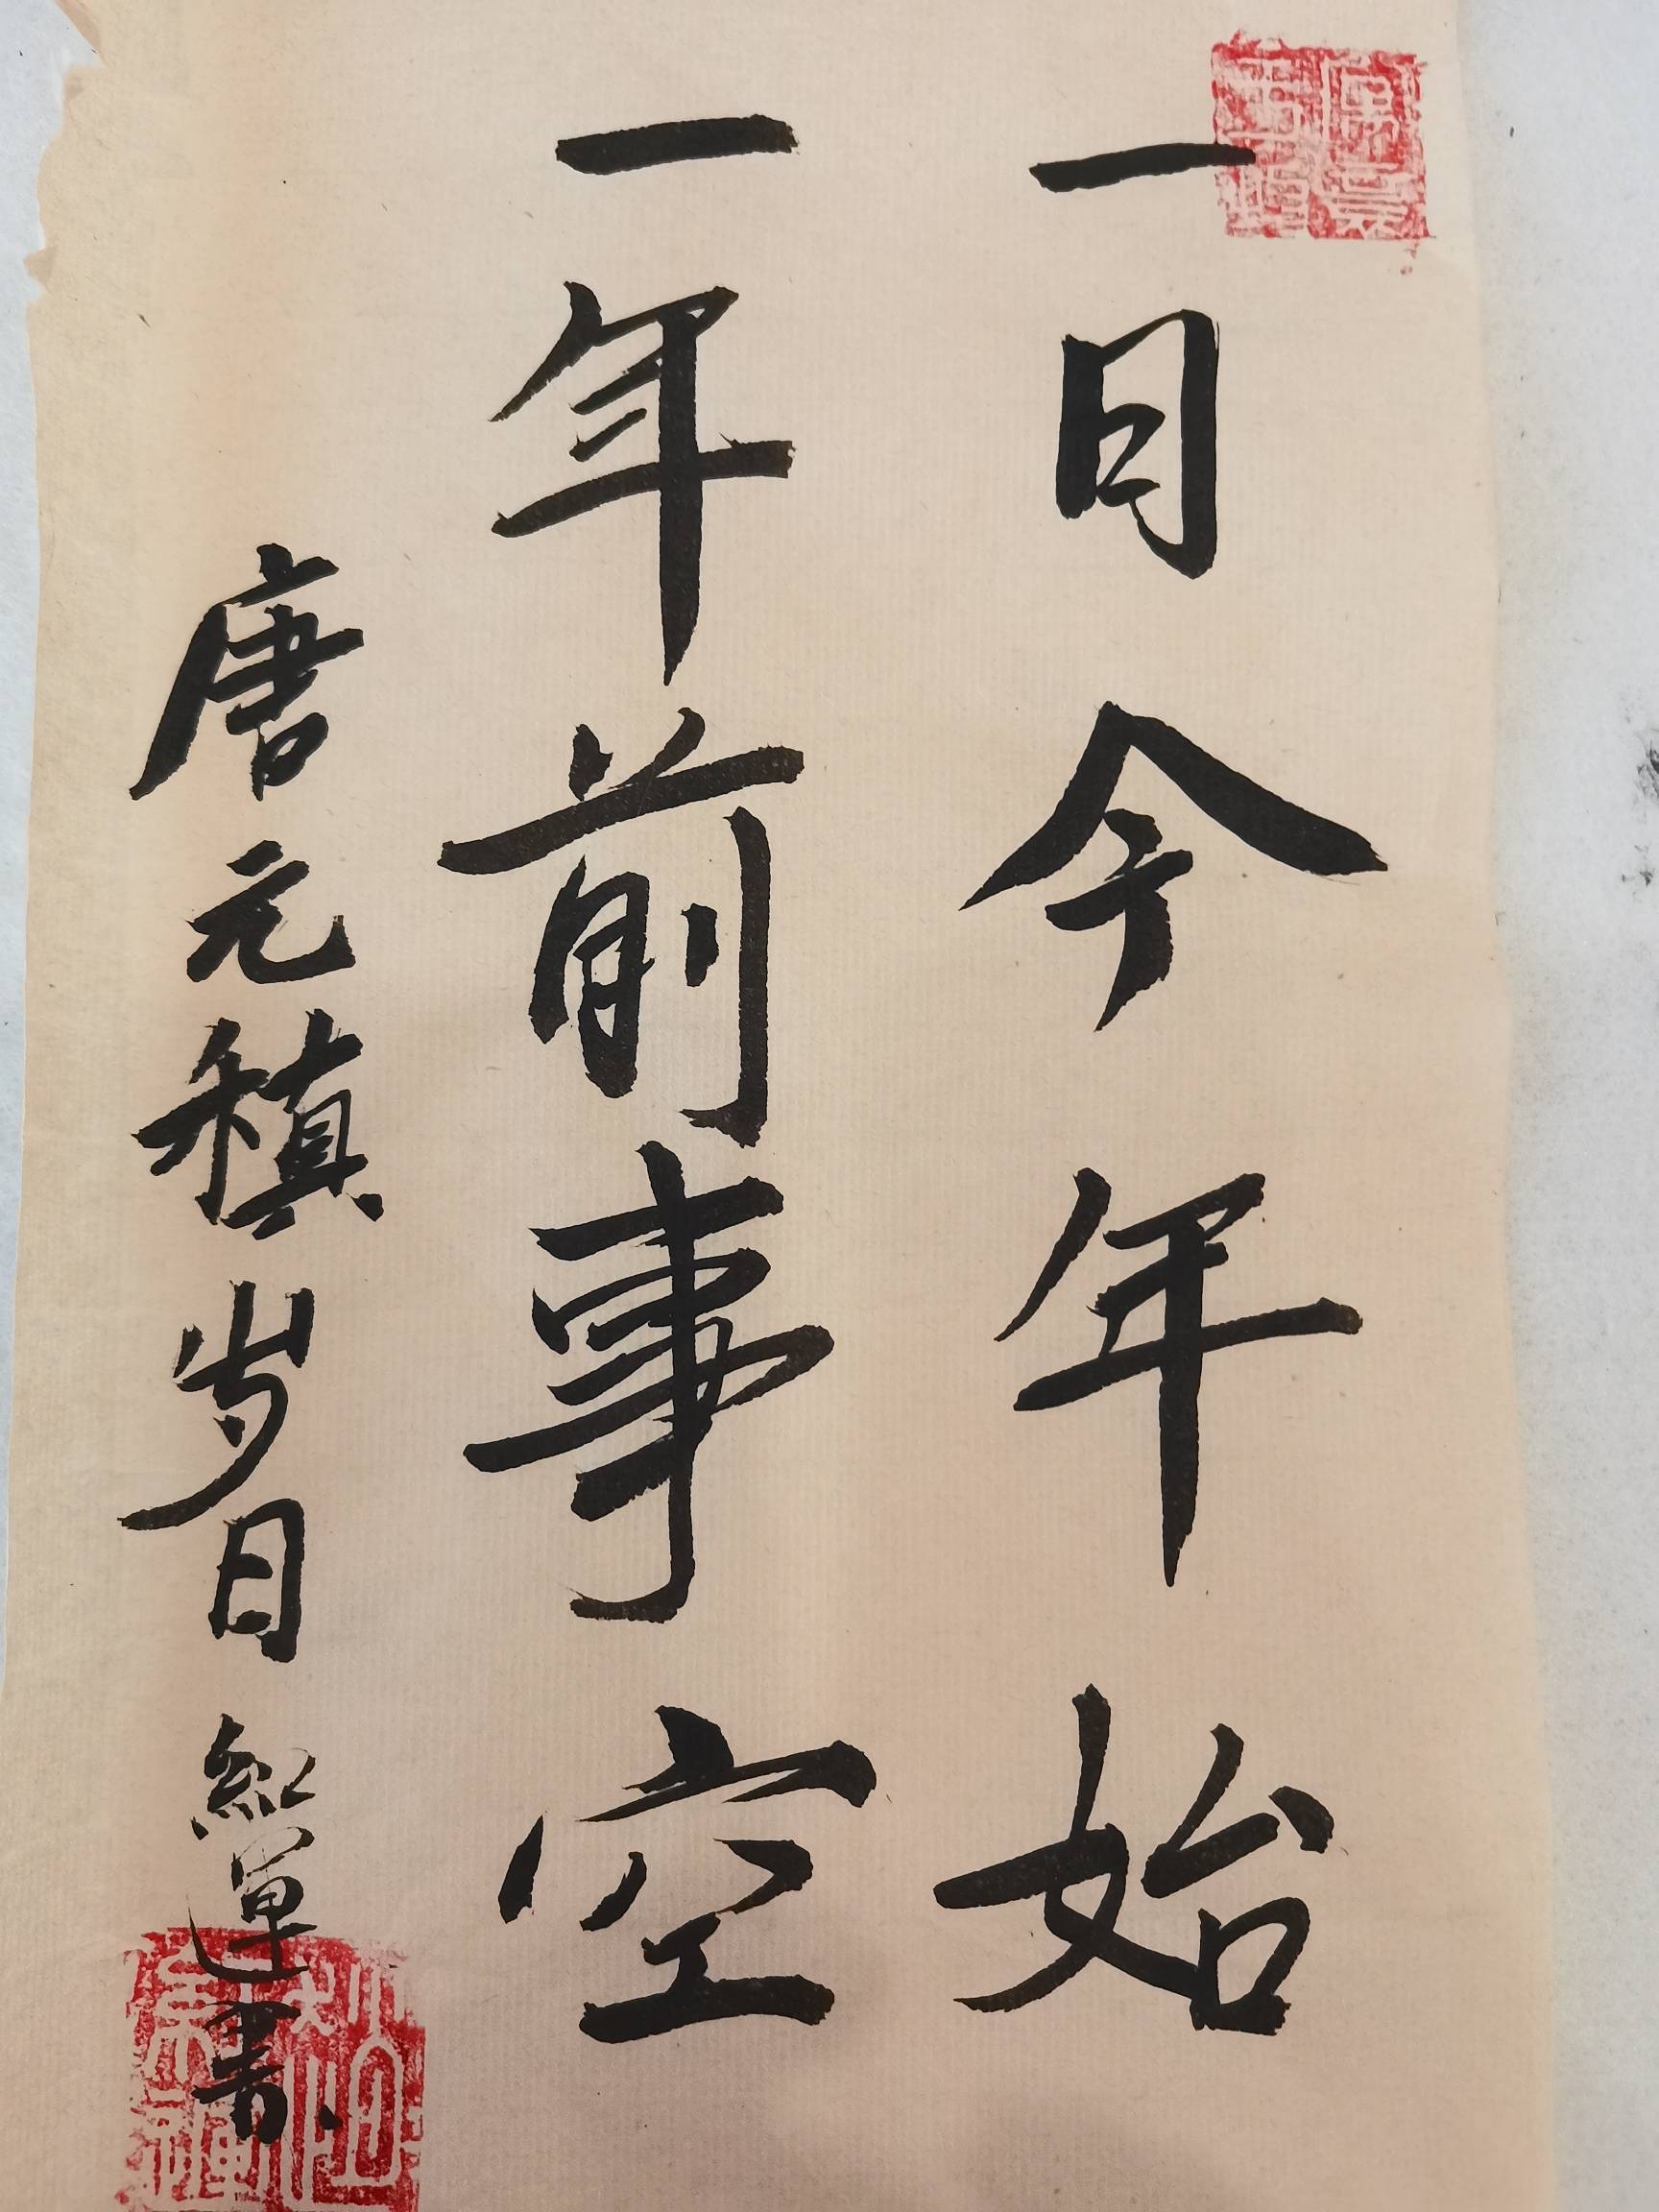 一日今年始
一年前事空
唐元稹岁日紅運書